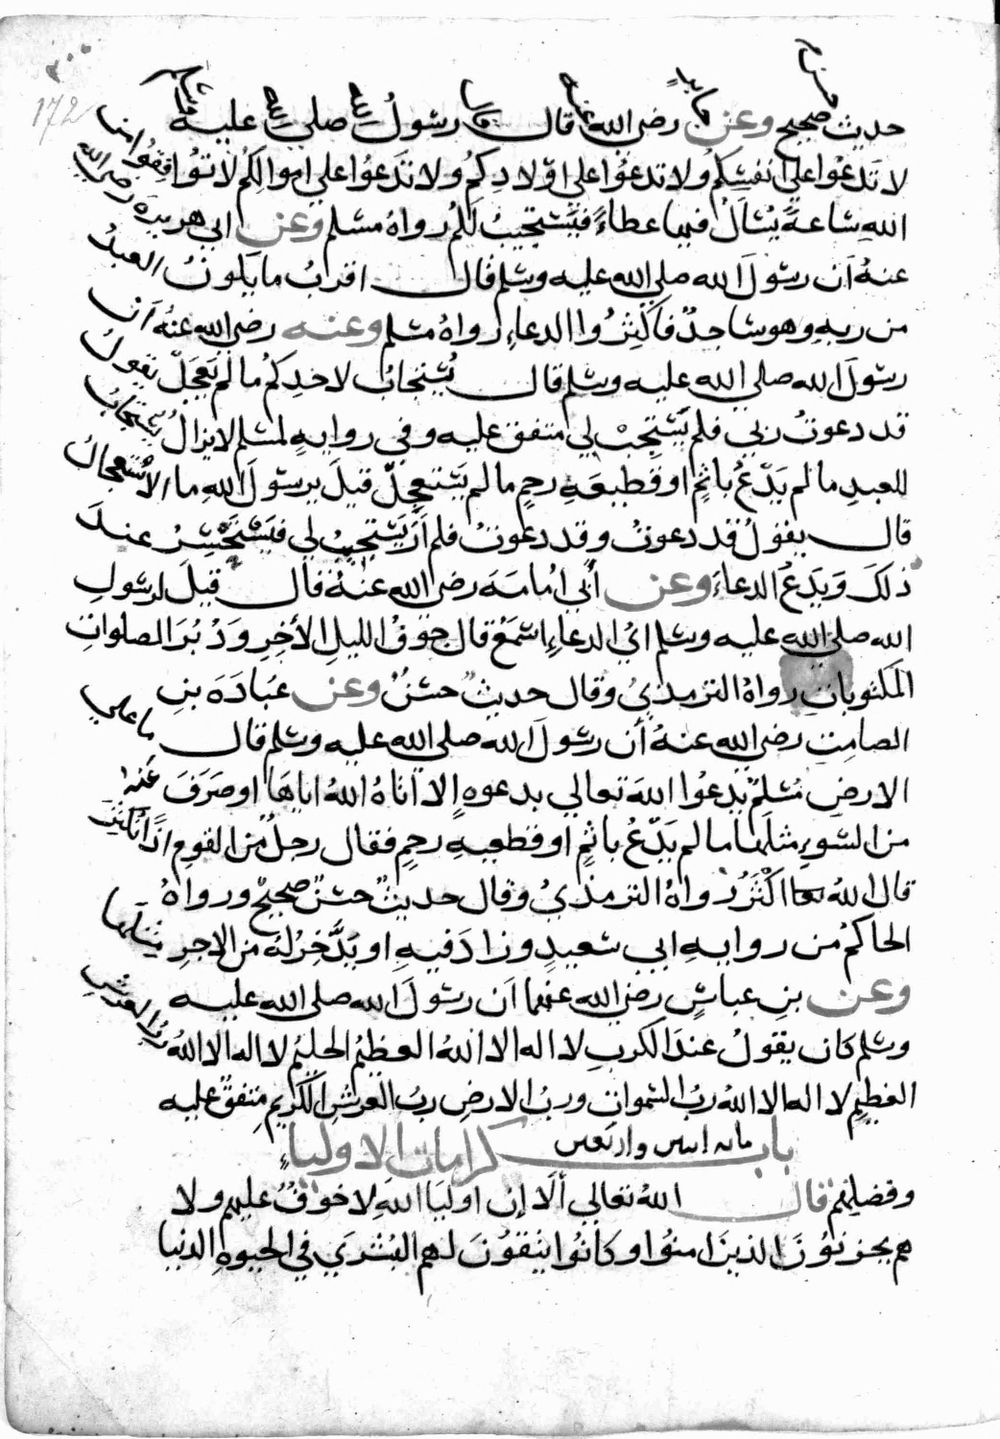 حديث صحيح وعن رضي الله قال رسول صلى عليه
لا تدعوا علي انفسكم ولا تدعوا علي اولادكم ولا تدعوا علي اموالكم لا توافقوا من
الله ساعة يسال فيها عطاء فيستجيب لكم رواه مسلم وعن ابي هريرة رضي الله
عنه ان رسول الله صلي الله عليه وسلم قال اقرب ما يكون العبد
من ربه وهو ساجد فاكثروا الدعاء رواه مسلم وعنه رضي الله عنه ان
رسول الله صلي الله عليه وسلم قال يستجاب لاحدكم ما لم يعجل يقول
قد دعوت ربي فلم يستجب لي متفق عليه وفي رواية لمسلم لا يزال يستجاب
للعبد ما لم يدع باثم او قطيعة رحم ما لم يستعجل قيل يرسول الله ما الاستعجال
قال يقول قد دعوت وقد دعوت فلم ار يستجيب لي فيستحسر عند
ذلك ويدع الدعاء وعن أبي امامة رضي الله عنه قال قيل لرسول
الله صلي الله عليه وسلم اي الدعاء اسمع قال جوف الليل الأخر ودبر الصلوات
المكتوبات رواه الترمذي وقال حديث حسن وعن عبادة بن
الصامت رضي الله عنه أن رسول الله صلي الله عليه وسلم قال ما علي
الارض مسلم يدعوا الله تعالي بدعوة الا اتاه الله اياها او صرف عنه
من السوء مثلها ما لم يدع باثم او قطيعة رحم فقال رجل من القوم اذا نكثر
قال الله اكثر رواه الترمذي وقال حديث حسن صحيح ورواه
الحاكم من رواية ابي سعيد وزاد فيه او يدخر له من الاجر مثلها
وعن بن عباس رضي الله عنهما ان رسول الله صلي الله عليه
وسلم كان يقول عند الكرب لا اله الا الله العظيم الحليم لا اله الا الله رب العرش
العظيم لا اله الا الله رب السموات ورب الارض رب العرش الكريم متفق عليه
باب مايه واربعين كرامات الاولياء
وفضلهم قال الله تعالي ألا إن اوليا الله لا خوف عليهم ولا
هم يحزنون الذين امنوا وكانوا يتقون لهم البشري في الحيوة الدنيا
172